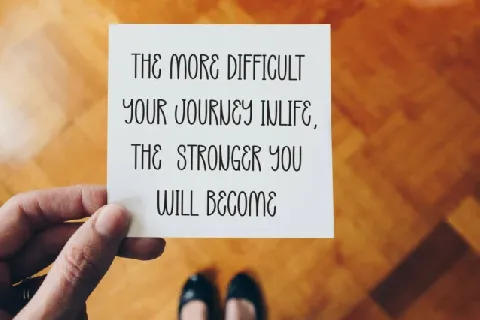 THE MORE DIFFICULT
YOUR JOURNEY INLIFE,
THE STRONGER YOU
WILL BECOME